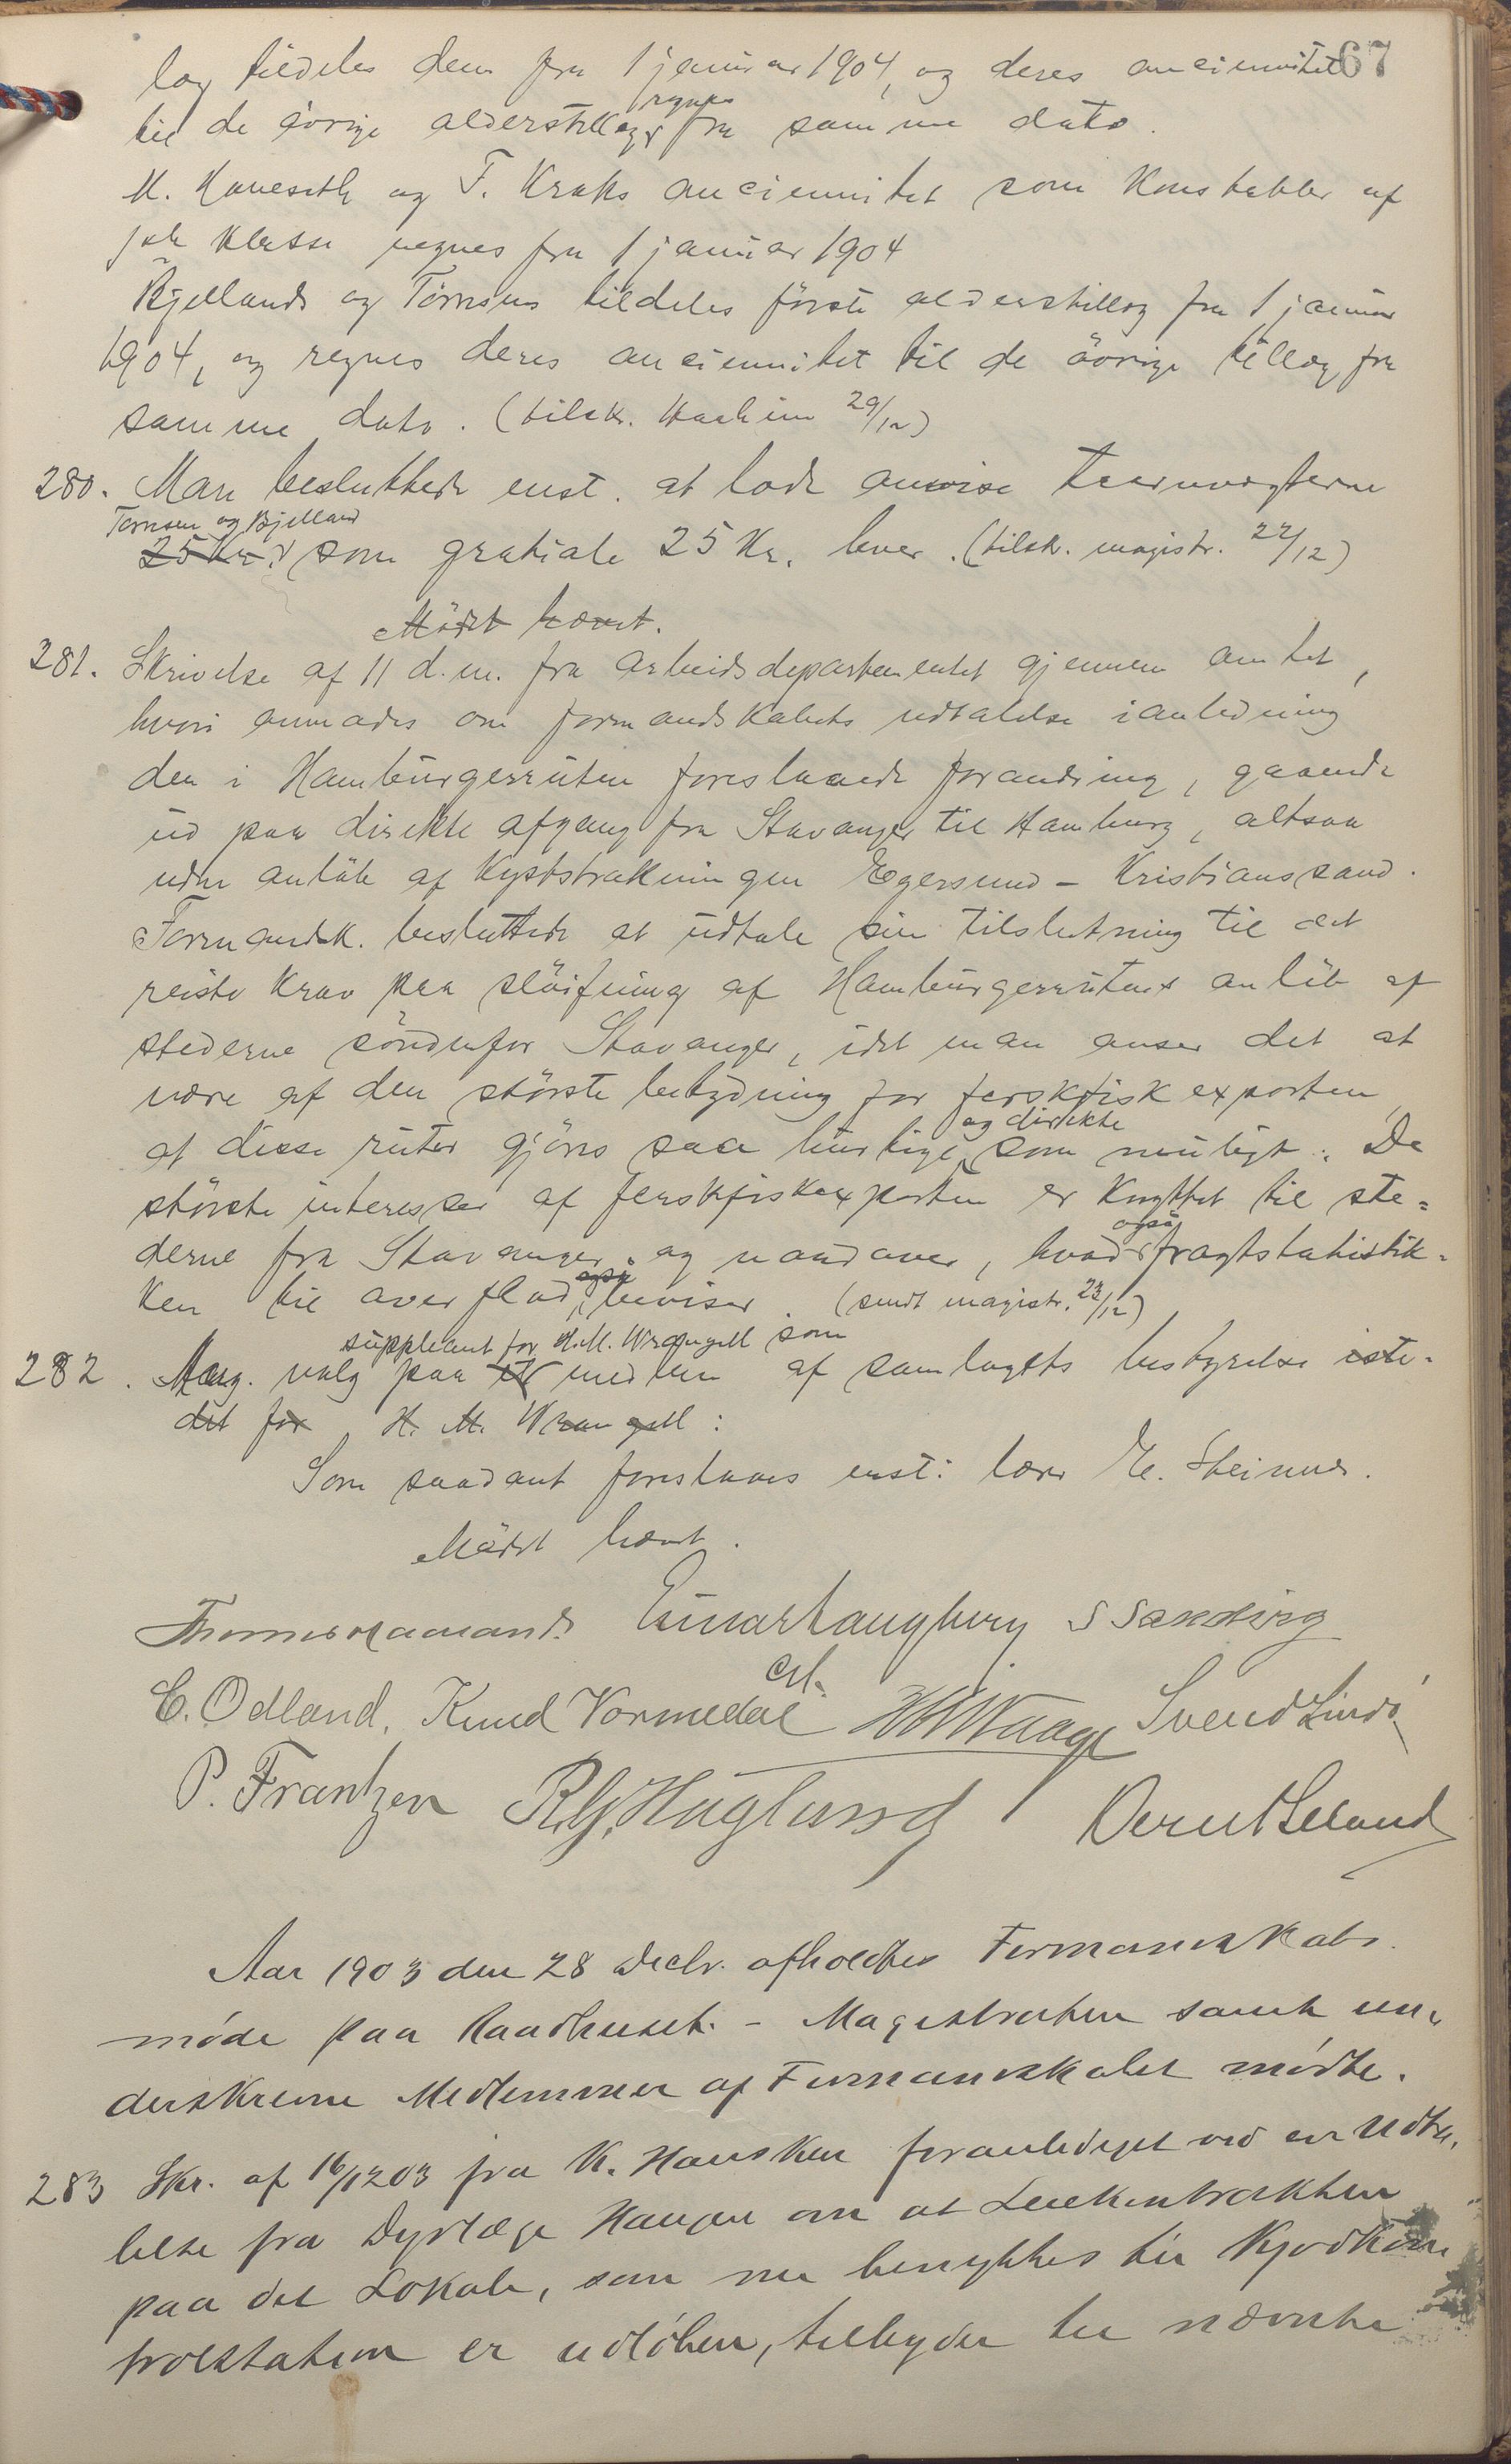 67
læg tildeles dem fra 1 januar 1904, og deres anciennitet
til de övrige alderstillæg regnes fra samme dato.
K. Haveseth og F. Kraks anciennitet som Konstabler af
1ste Klasse regnes fra 1 januar 1904
Bjelland og Tornsens tildeles förste alderstillæg fra 1 januar
1904, og regnes deres anciennitet til de övrige tillæg fra
samme dato. (tilsk. 29/12)
280. Man besluttede enst. at lade anvise taarnvægterne
Tornsen og Bjelland
25 Kr. som gratiale 25 Kr. hver. (tilsk. magistr. 22/12)
Mödet hævet.
281. Skrivelse af 11 d.m. fra arbeidsdepartementet gjennem amtet,
hvori anmodes om formandskabets udtalelse i anledning
den i Hamburgerruten foreslaaede forandring, gaaende
ud paa direkte afgang fra Stavanger til Hamburg, altsaa
uden anlöb af Kyststrækningen Egersund - Kristianssand.
Formandsk. besluttede at udtale sin tilslutning til det
reiste Krav paa slöifning af Hamburgerrutens anlöb af
stederne söndenfor Stavanger, idet man anser det at
være af den störste betydning for ferskfiskexporten,
at disse ruter gjöres saa hurtige og direkte som muligt. De
störste interesser af ferskfiskexporten er Knyttet til ste=
derne fra Stavanger og nordover, hvad også fragtstatistik-
Ken til overflod også beviser. (sendt magistr. 23/12)
suppleant for H.M. Wrangell som
282. Ang. valg paa medlem af samlagets bestyrelse iste-
det for H. M. Wrangell:
Som saadant foreslaaes enst: lærer E. Steinnes.
Mödet hævet.
Thomas Haaland. Einar Laugbery S Sandvig
C. Odland. Knud Vormedal H H Waage Svend Lindö
P. Frantzen R.G. Haglund Bernt Leland
Aar 1903 den 28 Decbr. afholdtes Formandskabs
møde paa Raadhuset. - Magistraten samt un-
derskrevne Medlemmer af Formandskabet mødte.
283 Skr. af 16/12 03 fra K. Hansken foranlediget ved en Udta-
lelse fra Dyrlæge Haugen om at Leiekontrakten
paa det Lokale, som nu benyttes til Kjødkon
trolstation er udløben, tilbyder til nævnte